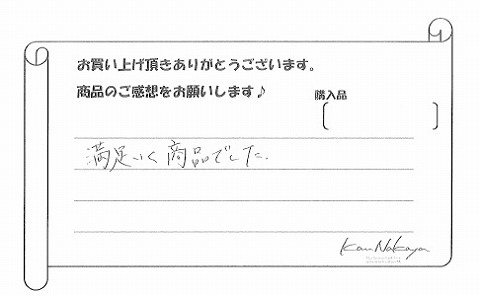 お買い上げ頂きありがとうございます。
商品のご感想をお願いします♪
購入品
[ ]
満足いく商品でした。
Kan Nakaya